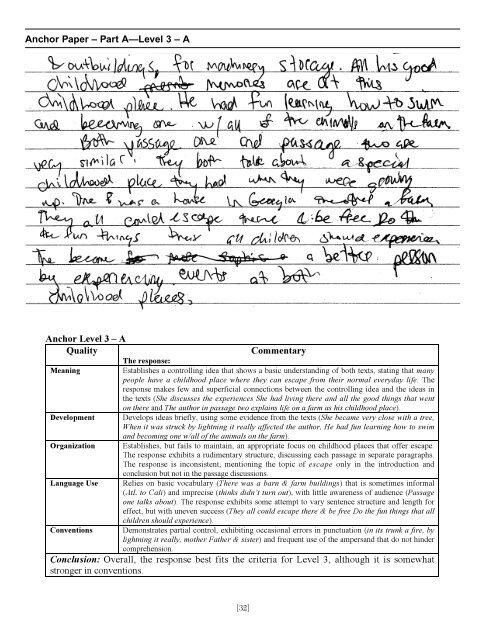 Anchor Paper – Part A—Level 3 – A
& outbuildings, for machinery storage. All his good
childhood memories are at this
childhood place. He had fun learning how to swim
and becoming one w/all of the animals on the farm.
Both passage one and passage two are
very similar. They both talk about a special
childhood place they had when they were growing
up. One was a house in Georgia a barn
They all could escape there & be free Do
the fun things all children should experience
The become a better person
by experiencing events at both
childhood places.
Anchor Level 3 – A
Quality
Commentary
The response:
Meaning
Establishes a controlling idea that shows a basic understanding of both texts, stating that many
people have a childhood place where they can escape from their normal everyday life. The
response makes few and superficial connections between the controlling idea and the ideas in
the texts (She discusses the experiences She had living there and all the good things that went
on there and The author in passage two explains life on a farm as his childhood place).
Development
Develops ideas briefly, using some evidence from the texts (She became very close with a tree,
When it was struck by lightning it really affected the author, He had fun learning how to swim
and becoming one w/all of the animals on the farm).
Organization
Establishes, but fails to maintain, an appropriate focus on childhood places that offer escape.
The response exhibits a rudimentary structure, discussing each passage in separate paragraphs.
The response is inconsistent, mentioning the topic of escape only in the introduction and
conclusion but not in the passage discussions.
Language Use
Relies on basic vocabulary (There was a barn & farm buildings) that is sometimes informal
(Atl. to Cali) and imprecise (thinks didn't turn out), with little awareness of audience (Passage
one talks about). The response exhibits some attempt to vary sentence structure and length for
effect, but with uneven success (They all could escape there & be free Do the fun things that all
children should experience).
Conventions
Demonstrates partial control, exhibiting occasional errors in punctuation (in its trunk a fire, by
lightning it really, mother Father & sister) and frequent use of the ampersand that do not hinder
comprehension.
Conclusion: Overall, the response best fits the criteria for Level 3, although it is somewhat
stronger in conventions.
[32]